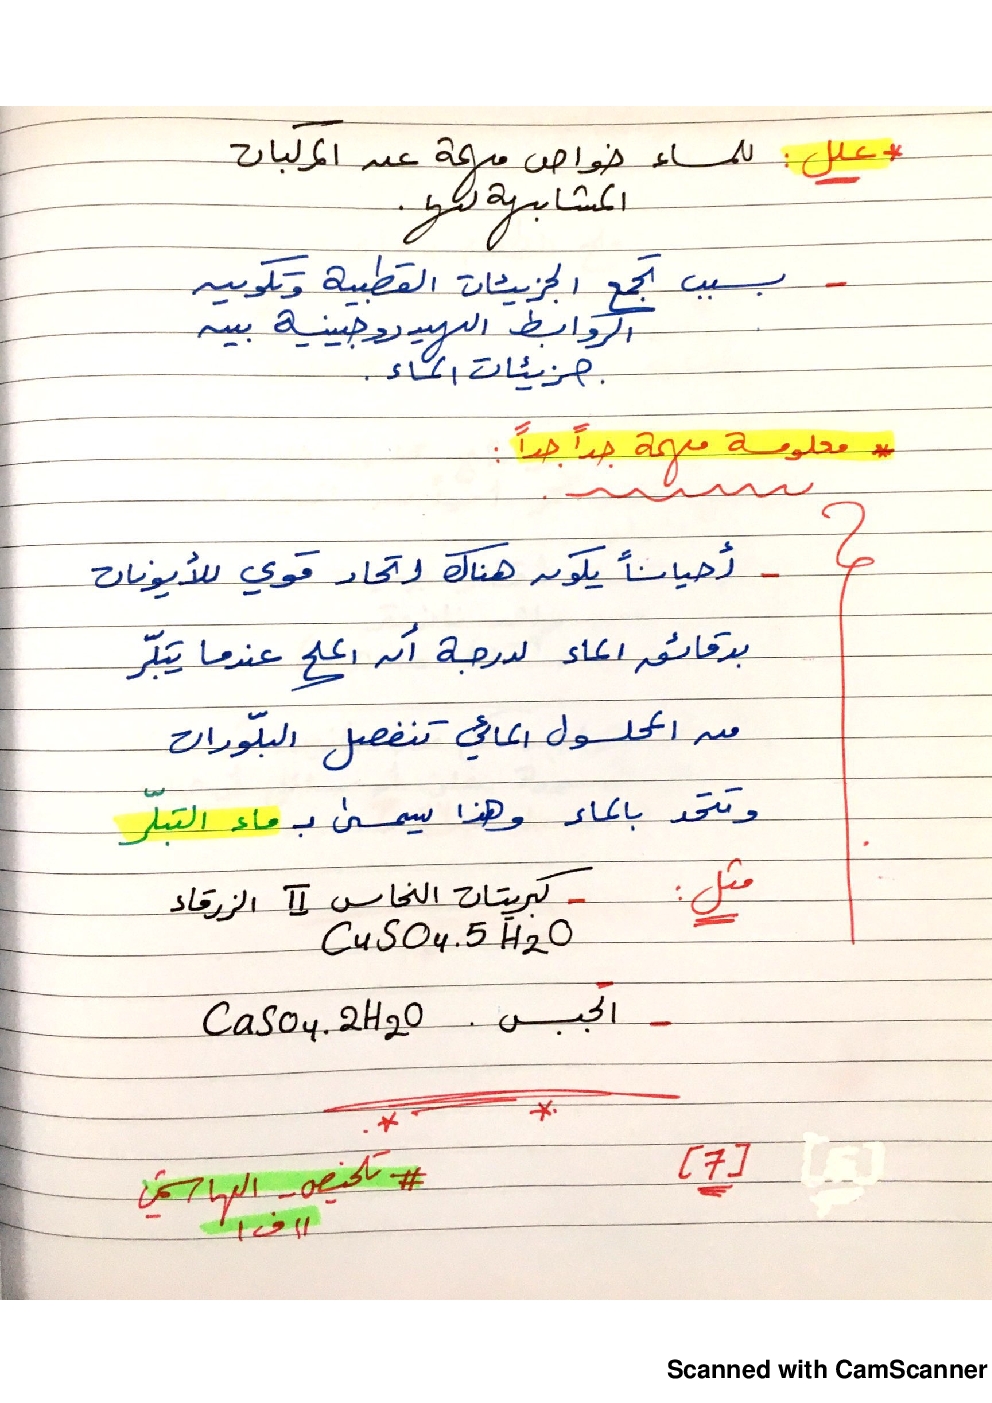 * علل : للماء خواص مهمة عن المركبات
المشابهة لها .
- بسبب تجمع الجزيئات القطبية وتكوين
الروابط الهيدروجينية بين
جزيئات الماء .
* معلومة مهمة جداً جداً :
- أحياناً يكون هناك اتحاد قوي للأيونات
بدقائق الماء لدرجة أن الملح عندما يتبلّر
من المحلول المائي تنفصل البلّورات
وتتحد بالماء وهذا يسمى بـ ماء التبلّر
مثل : - كبريتات النحاس II الزرقاء
CuSO4.5H2O
- الجبس . CaSO4.2H2O
[7]
# تلخيص_الهاشمي
١١ف١
Scanned with CamScanner